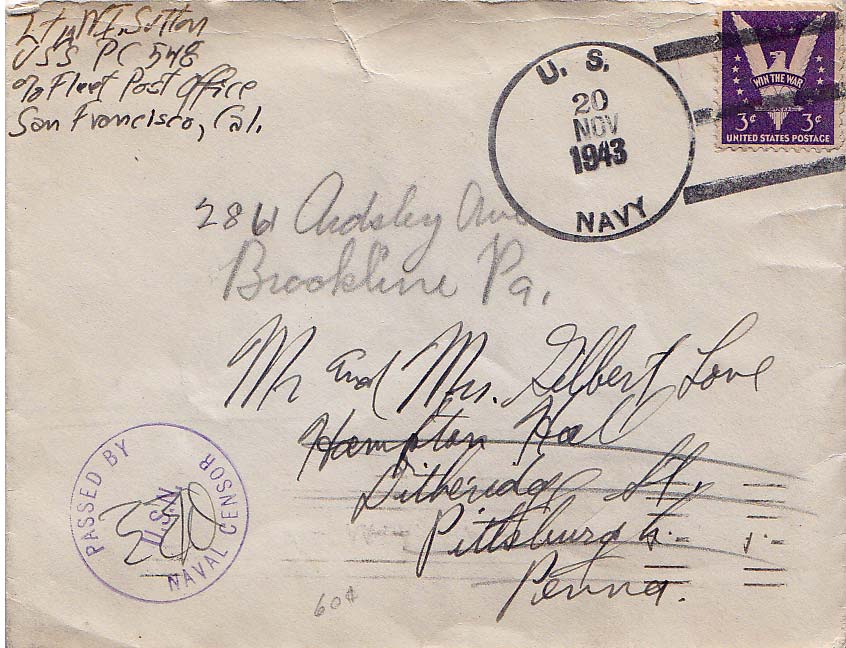 Lt jg W.I. Sutton
USS PC 548
c/o Fleet Post Office
San Francisco, Cal.
U. S.
20
NOV
1943
NAVY
WIN THE WAR
3¢ 3¢
UNITED STATES POSTAGE
2861 Ardsley Ave
Brookline Pa.
Mr and Mrs. Gilbert Love
Hampton Hall
Ditheridge St.
Pittsburgh
Penna.
PASSED BY
U.S.N.
NAVAL CENSOR
60¢